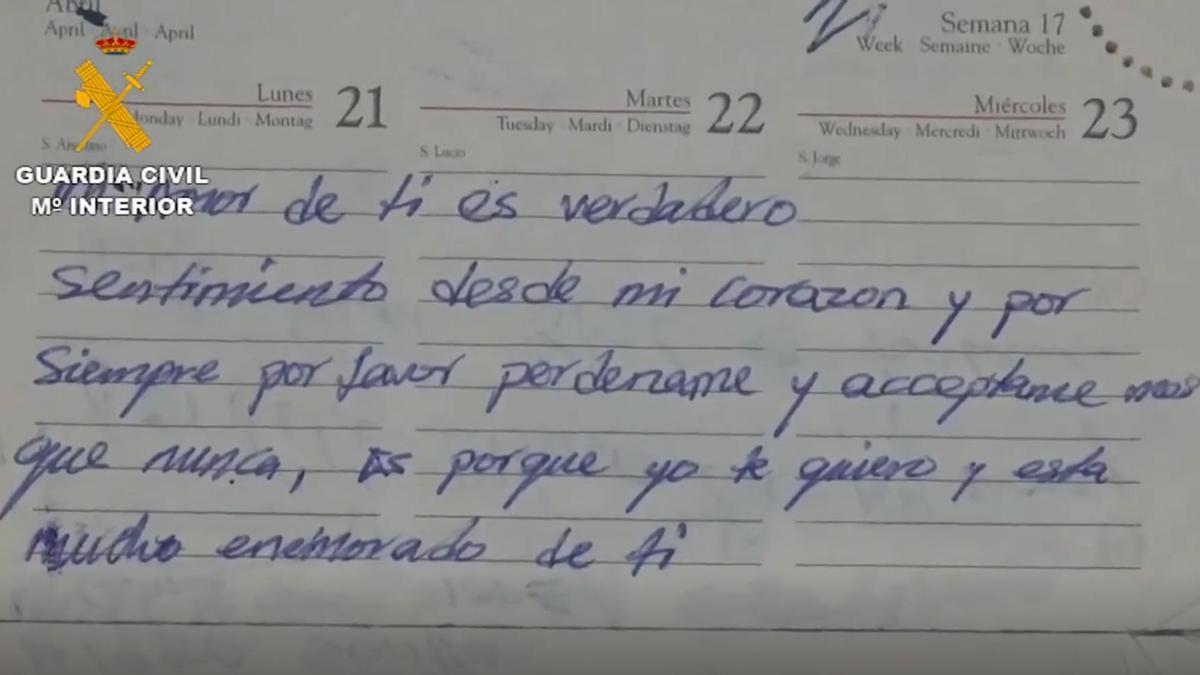 Abril
April Avril · April
Semana 17
Week Semaine · Woche
Lunes 21
Monday · Lundi · Montag
Martes 22
Tuesday · Mardi · Dienstag
Miércoles 23
Wednesday · Mercredi · Mittwoch
S. Anselmo
S. Lucio
S. Jorge
GUARDIA CIVIL
Mº INTERIOR
Amor de ti es verdadero
sentimiento desde mi corazon y por
siempre por favor perdename y acceptame mas
que nunca, es porque yo te quiero y esta
mucho enemorado de ti